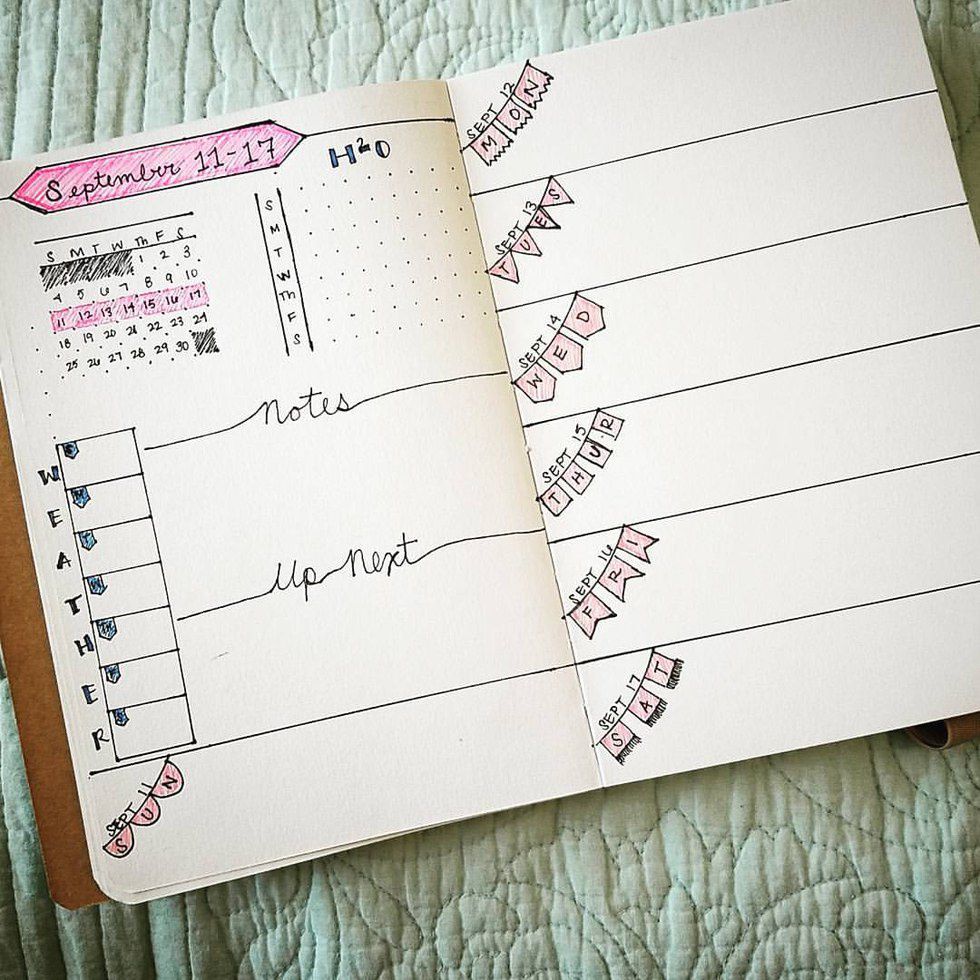 September 11-17
H²O
S M T W Th F S
1 2 3
4 5 6 7 8 9 10
11 12 13 14 15 16 17
18 19 20 21 22 23 24
25 26 27 28 29 30
S
M
T
W
Th
F
S
Notes
Up Next
WEATHER
M
T
W
TH
SEPT 11
SUN
SEPT 12
MON
SEPT 13
TUES
SEPT 14
WED
SEPT 15
THUR
SEPT 16
FRI
SEPT 17
SAT